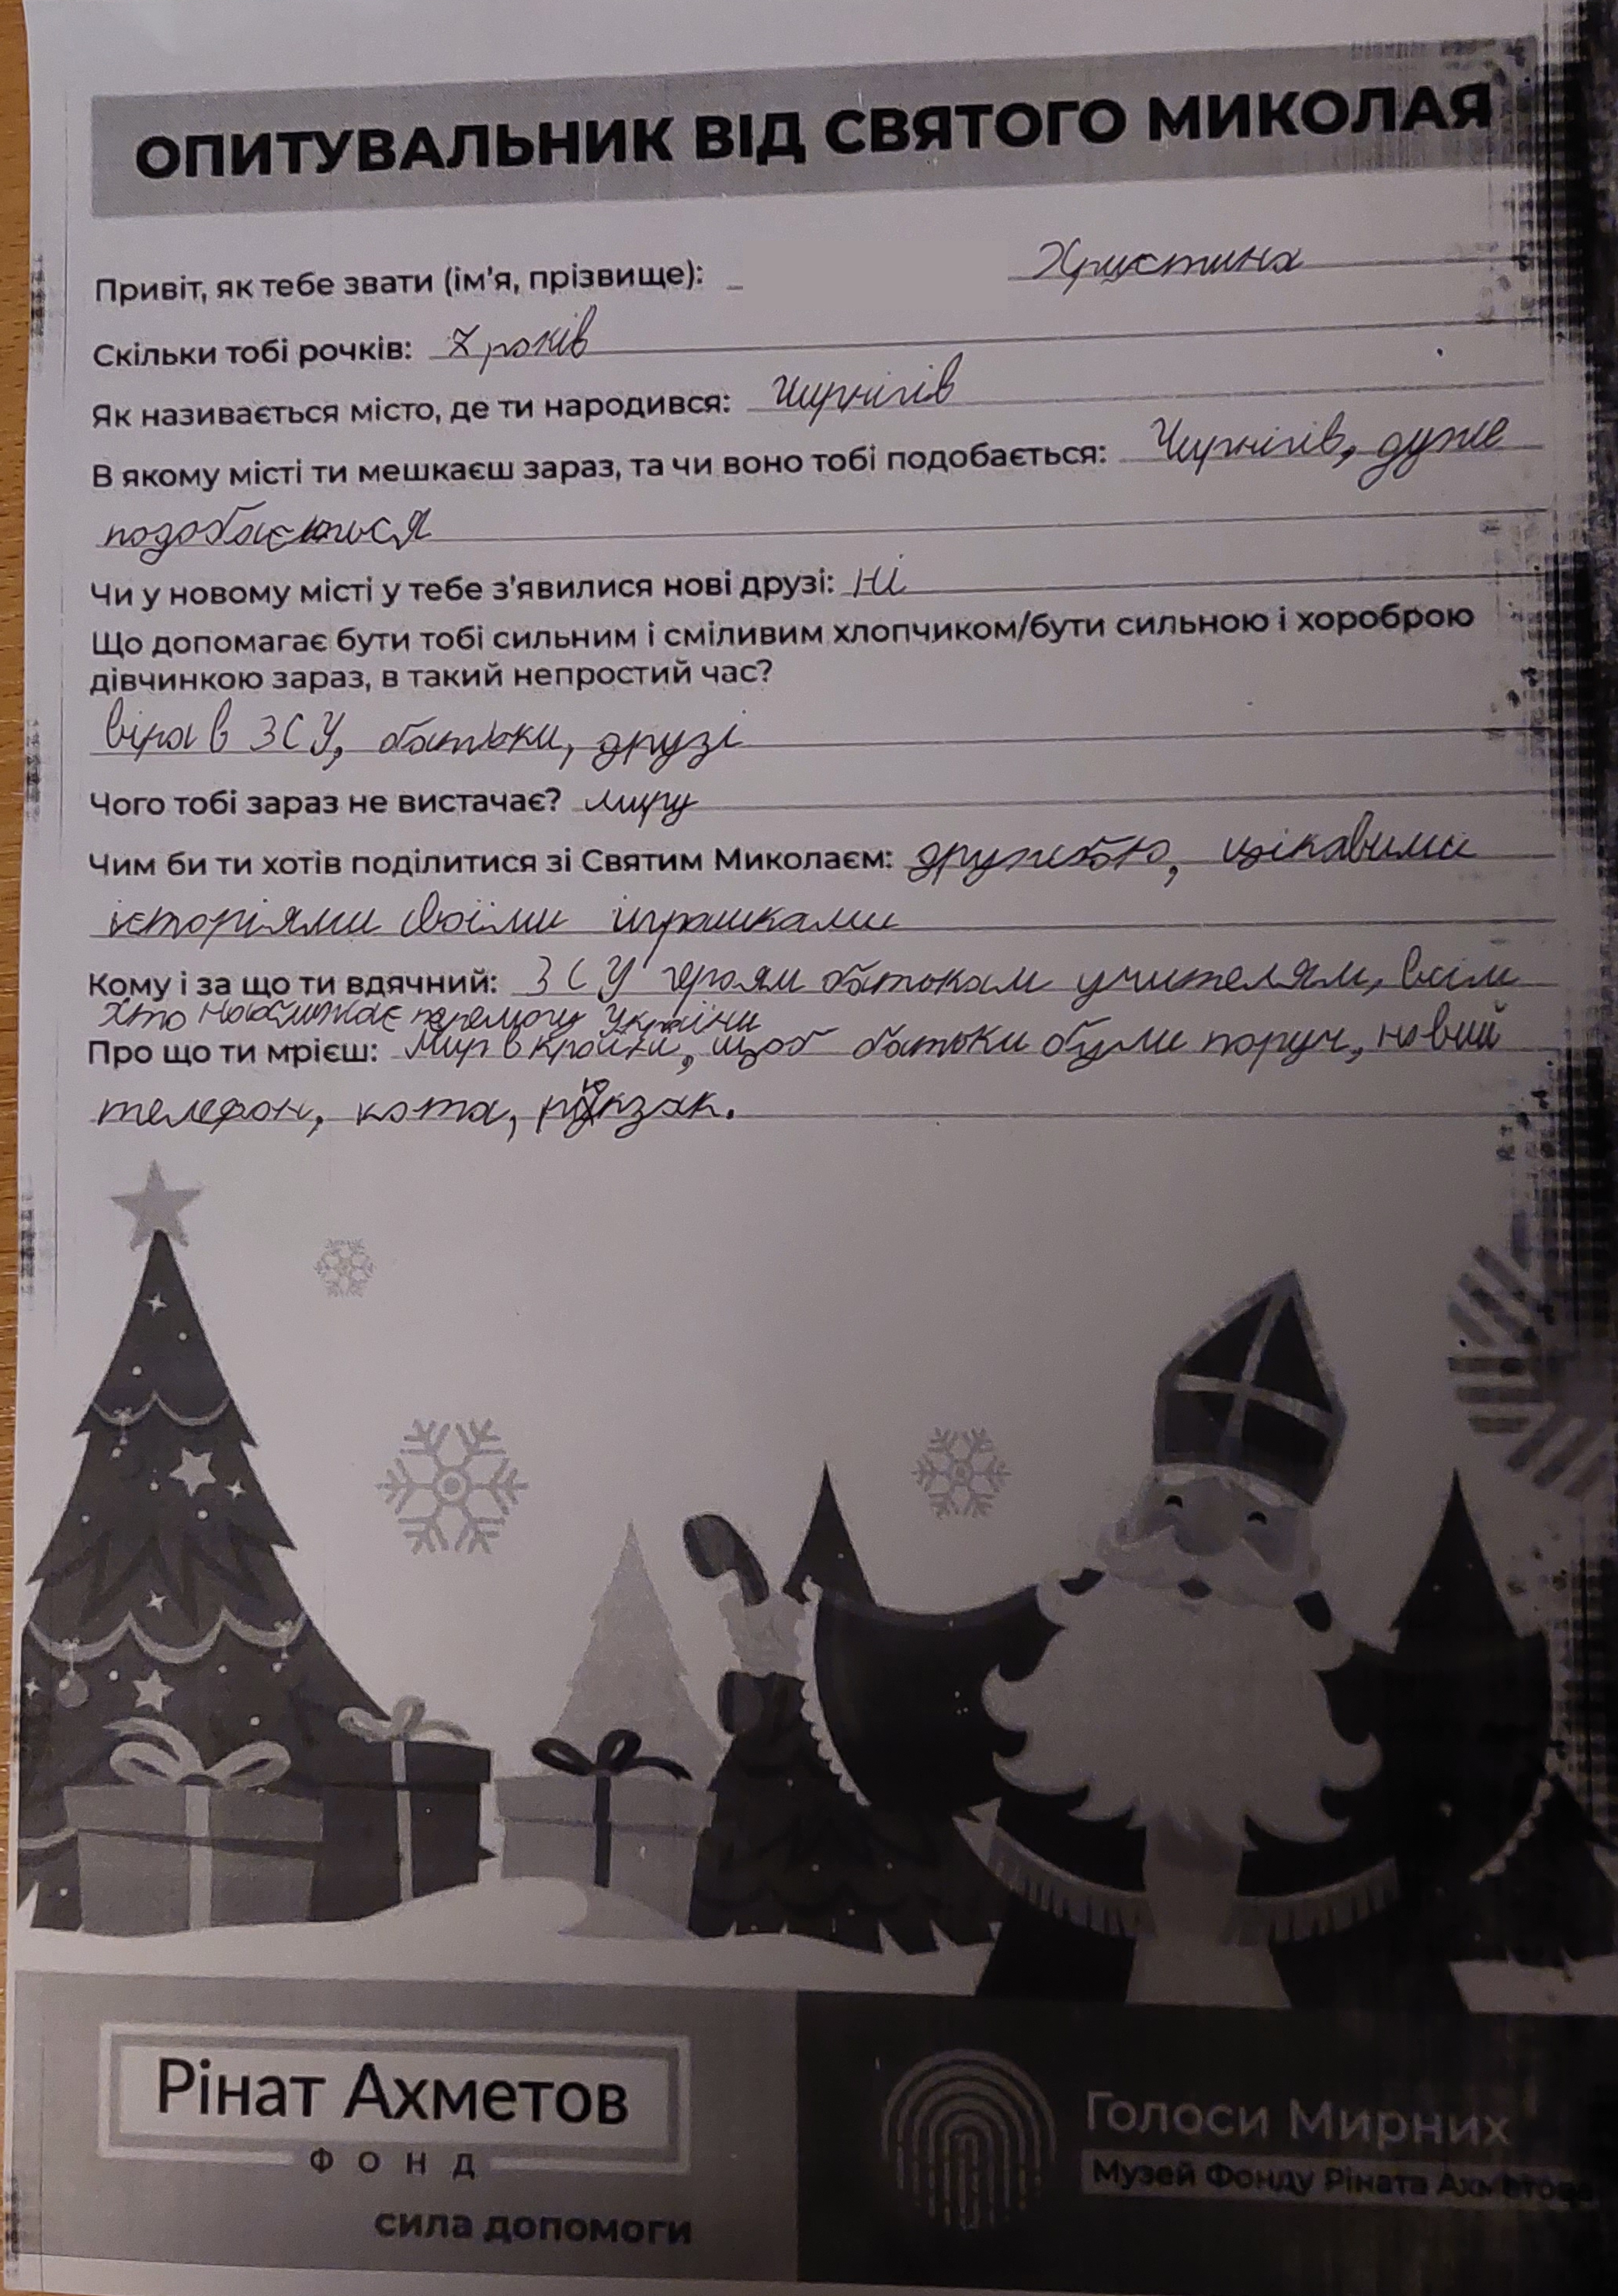 ОПИТУВАЛЬНИК ВІД СВЯТОГО МИКОЛАЯ
Привіт, як тебе звати (ім'я, прізвище): Христина
Скільки тобі рочків: 7 років
Як називається місто, де ти народився: Чирнігів
В якому місті ти мешкаєш зараз, та чи воно тобі подобається: Чирнігів, дуже
подобається
Чи у новому місті у тебе з'явилися нові друзі: Ні
Що допомагає бути тобі сильним і сміливим хлопчиком/бути сильною і хороброю
дівчинкою зараз, в такий непростий час?
віра в ЗСУ, батьки, друзі
Чого тобі зараз не вистачає? миру
Чим би ти хотів поділитися зі Святим Миколаєм: дружбою, цікавими
історіями своїми іграшками
Кому і за що ти вдячний: ЗСУ героям батькам учителям, всім
хто наближає перемогу України
Про що ти мрієш: Мир в країні, щоб батьки були поруч, новий
телефон, кота, рюкзак.
Рінат Ахметов
ФОНД
сила допомоги
Голоси Мирних
Музей Фонду Ріната Ахметова